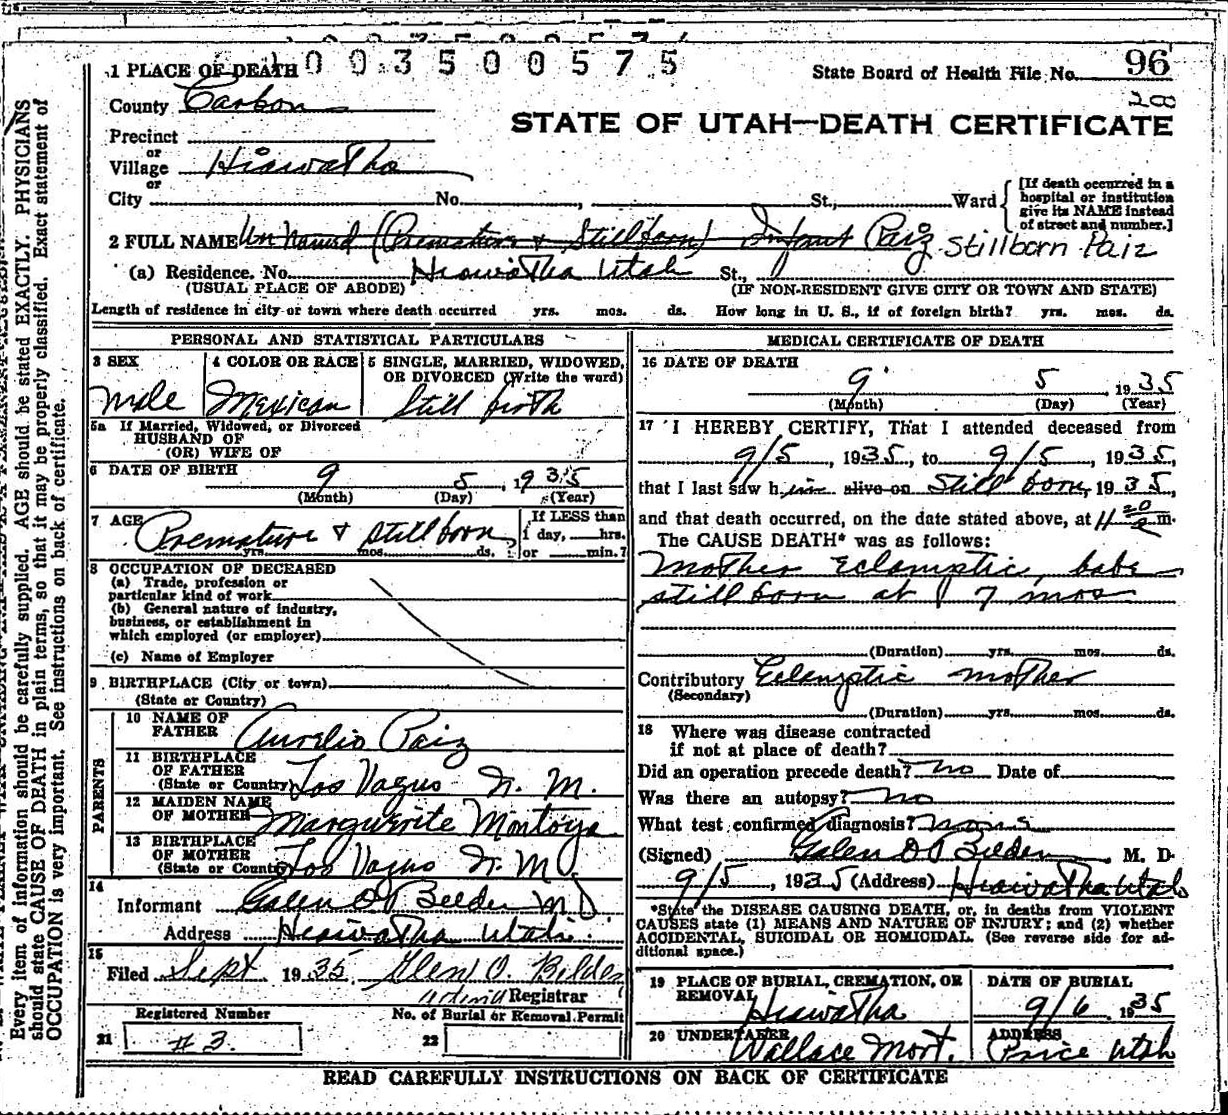 1 0 0 3 5 0 0 5 7 5
1 PLACE OF DEATH
State Board of Health File No. 96
County Carbon
200
STATE OF UTAH—DEATH CERTIFICATE
Precinct
or
Village Hiawatha
or
City No. , St., Ward
[If death occurred in a
hospital or institution
give its NAME instead
of street and number.]
2 FULL NAME Un Named (Premature & Stillborn) Infant Paiz Stillborn Paiz
(a) Residence. No. Hiawatha Utah St.,
(USUAL PLACE OF ABODE) (IF NON-RESIDENT GIVE CITY OR TOWN AND STATE)
Length of residence in city or town where death occurred yrs. mos. ds. How long in U. S., if of foreign birth? yrs. mos. ds.
PERSONAL AND STATISTICAL PARTICULARS
3 SEX
Male
4 COLOR OR RACE
Mexican
5 SINGLE, MARRIED, WIDOWED,
OR DIVORCED (Write the word)
Still birth
5a If Married, Widowed, or Divorced
HUSBAND OF
(OR) WIFE OF
6 DATE OF BIRTH 9 5 , 1935
(Month) (Day) (Year)
7 AGE Premature & stillborn
yrs. mos. ds.
If LESS than
1 day, hrs.
or min.?
8 OCCUPATION OF DECEASED
(a) Trade, profession or
particular kind of work
(b) General nature of industry,
business, or establishment in
which employed (or employer)
(c) Name of Employer
9 BIRTHPLACE (City or town)
(State or Country)
PARENTS
10 NAME OF
FATHER Aurelio Paiz
11 BIRTHPLACE
OF FATHER
(State or Country) Los Vagus N. M.
12 MAIDEN NAME
OF MOTHER Marguerite Montoya
13 BIRTHPLACE
OF MOTHER
(State or Country) Los Vagus N. M.
14
Informant Galen O Belden M.D.
Address Hiawatha Utah.
15
Filed Sept 1935 Glen O. Bilden
Registrar
Registered Number
21 #3.
No. of Burial or Removal Permit
22
MEDICAL CERTIFICATE OF DEATH
16 DATE OF DEATH
9 5 , 1935
(Month) (Day) (Year)
17 I HEREBY CERTIFY, That I attended deceased from
9/5 , 1935, to 9/5 , 1935,
that I last saw him alive on Still born, 1935,
and that death occurred, on the date stated above, at 11 20 a m.
The CAUSE DEATH* was as follows:
Mother Eclamptic, babe
still born at 7 mos
(Duration) yrs. mos. ds.
Contributory Eclamptic mother
(Secondary)
(Duration) yrs. mos. ds.
18 Where was disease contracted
if not at place of death?
Did an operation precede death? no Date of
Was there an autopsy? no
What test confirmed diagnosis? none
(Signed) Galen O Belden , M. D.
9/5 , 1935 (Address) Hiawatha Utah
*State the DISEASE CAUSING DEATH, or, in deaths from VIOLENT
CAUSES state (1) MEANS AND NATURE OF INJURY; and (2) whether
ACCIDENTAL, SUICIDAL OR HOMICIDAL. (See reverse side for ad-
ditional space.)
19 PLACE OF BURIAL, CREMATION, OR
REMOVAL Hiawatha
DATE OF BURIAL
9/6 1935
20 UNDERTAKER
Wallace Mort.
ADDRESS
Price Utah
READ CAREFULLY INSTRUCTIONS ON BACK OF CERTIFICATE
Every item of information should be carefully supplied. AGE should be stated EXACTLY. PHYSICIANS
should state CAUSE OF DEATH in plain terms, so that it may be properly classified. Exact statement of
OCCUPATION is very important. See instructions on back of certificate.